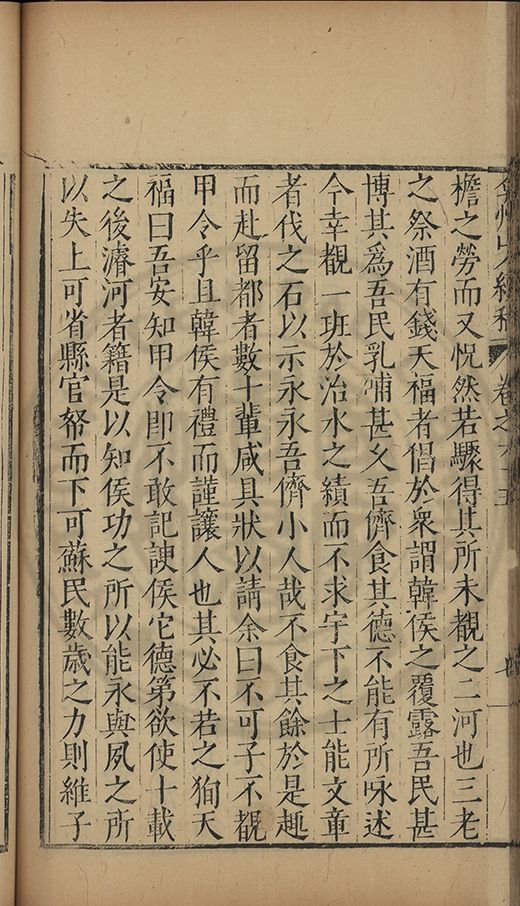 弇州山人續稿 卷之六十五
檐之勞而又恍然若驟得其所未覩之二河也三老
之祭酒有錢天福者倡於衆謂韓侯之覆露吾民甚
博其爲吾民乳哺甚乆吾儕食其德不能有所咏述
今幸覩一班於治水之績而不求宇下之士能文章
者伐之石以示永永吾儕小人哉不食其餘於是趣
而赴留都者數十輩咸具狀以請余曰不可子不覩
甲令乎且韓侯有禮而謹讓人也其必不若之狥天
福曰吾安知甲令即不敢記諛侯它德第欲使十載
之後濬河者籍是以知侯功之所以能永與夙之所
以失上可省縣官帑而下可蘇民數歲之力則維子